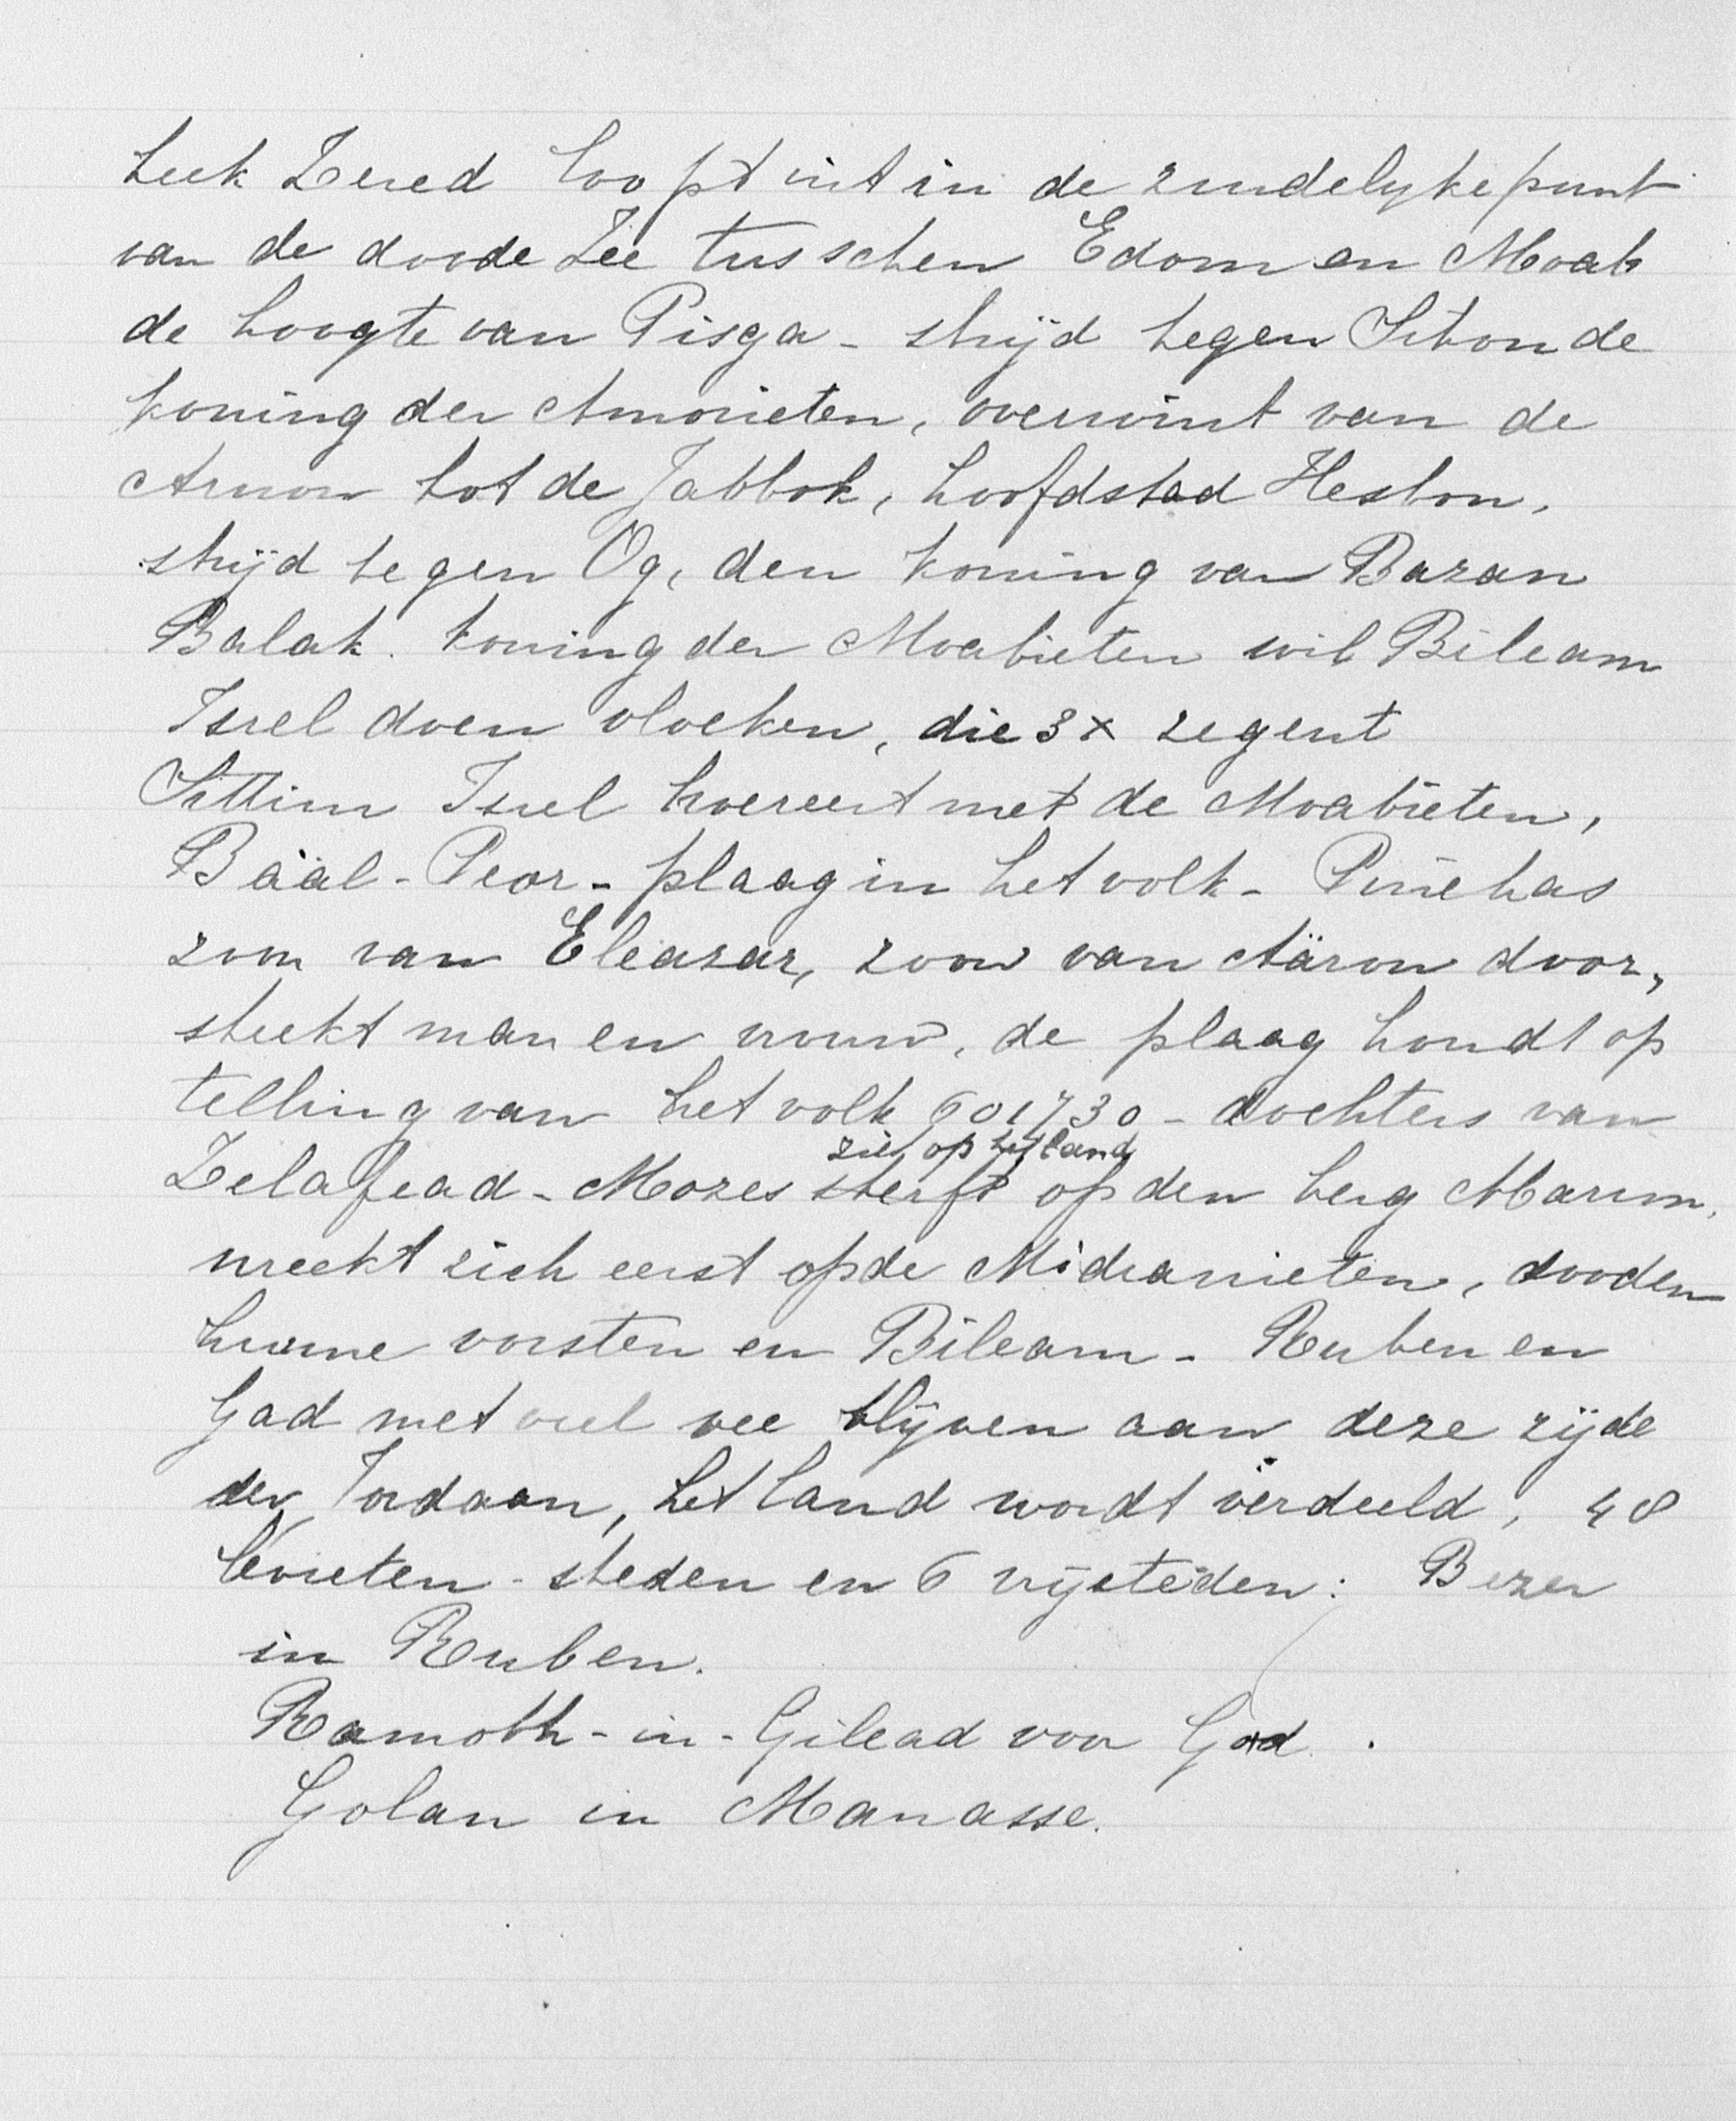 beek Zered loopt uit in de zuidelyke punt
van de doode Zee tusschen Edom en Moab
de hoogte van Pisga - strijd tegen Sihon de
koning der Amorieten, overwint van de
Arnon tot de Jabbok, hoofdstad Hesbon,
strijd tegen Og, den koning van Bazan
Balak. koning der Moabieten wil Bileam
Isrel doen vloeken, die 3x zegent
Sittim Isrel hoereert met de Moabieten,
Baäl-Peor - plaag in het volk - Pinehas
zoon van Eleazar, zoon van Aäron door,
steekt man en vrouw, de plaag houdt op
telling van het volk 601730 - dochters van
ziet op het land
Zelafead - Mozes sterft op den berg Abarim,
wreekt zich eerst op de Midianieten, dooden
hunne vorsten en Bileam - Ruben en
Gad met veel vee blijven aan deze zijde
der Jordaan, het land wordt verdeeld, 48
levieten-steden en 6 vrijsteden: Bezer
in Ruben.
Ramoth-in-Gilead voor Gad.
Golan in Manasse.